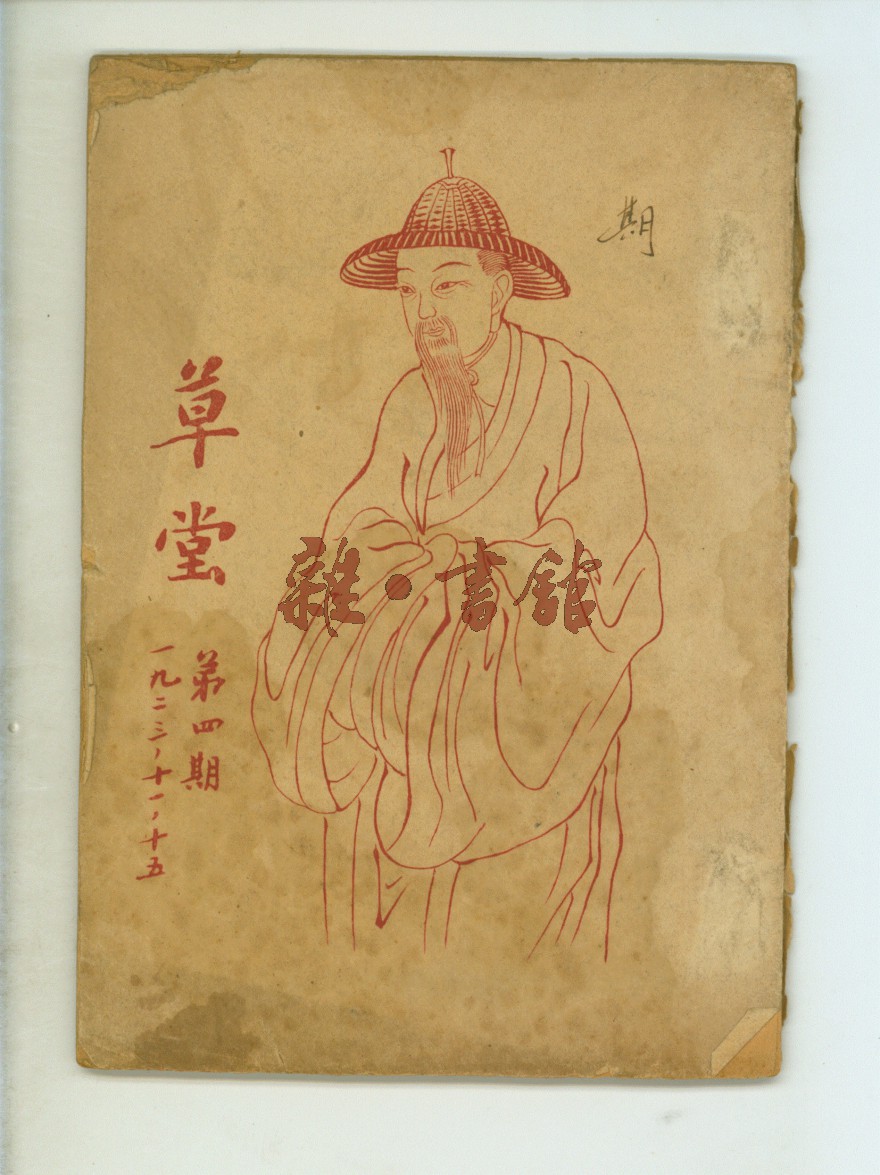 期
草堂
第四期
一九二三、十一、十五
雜・書館